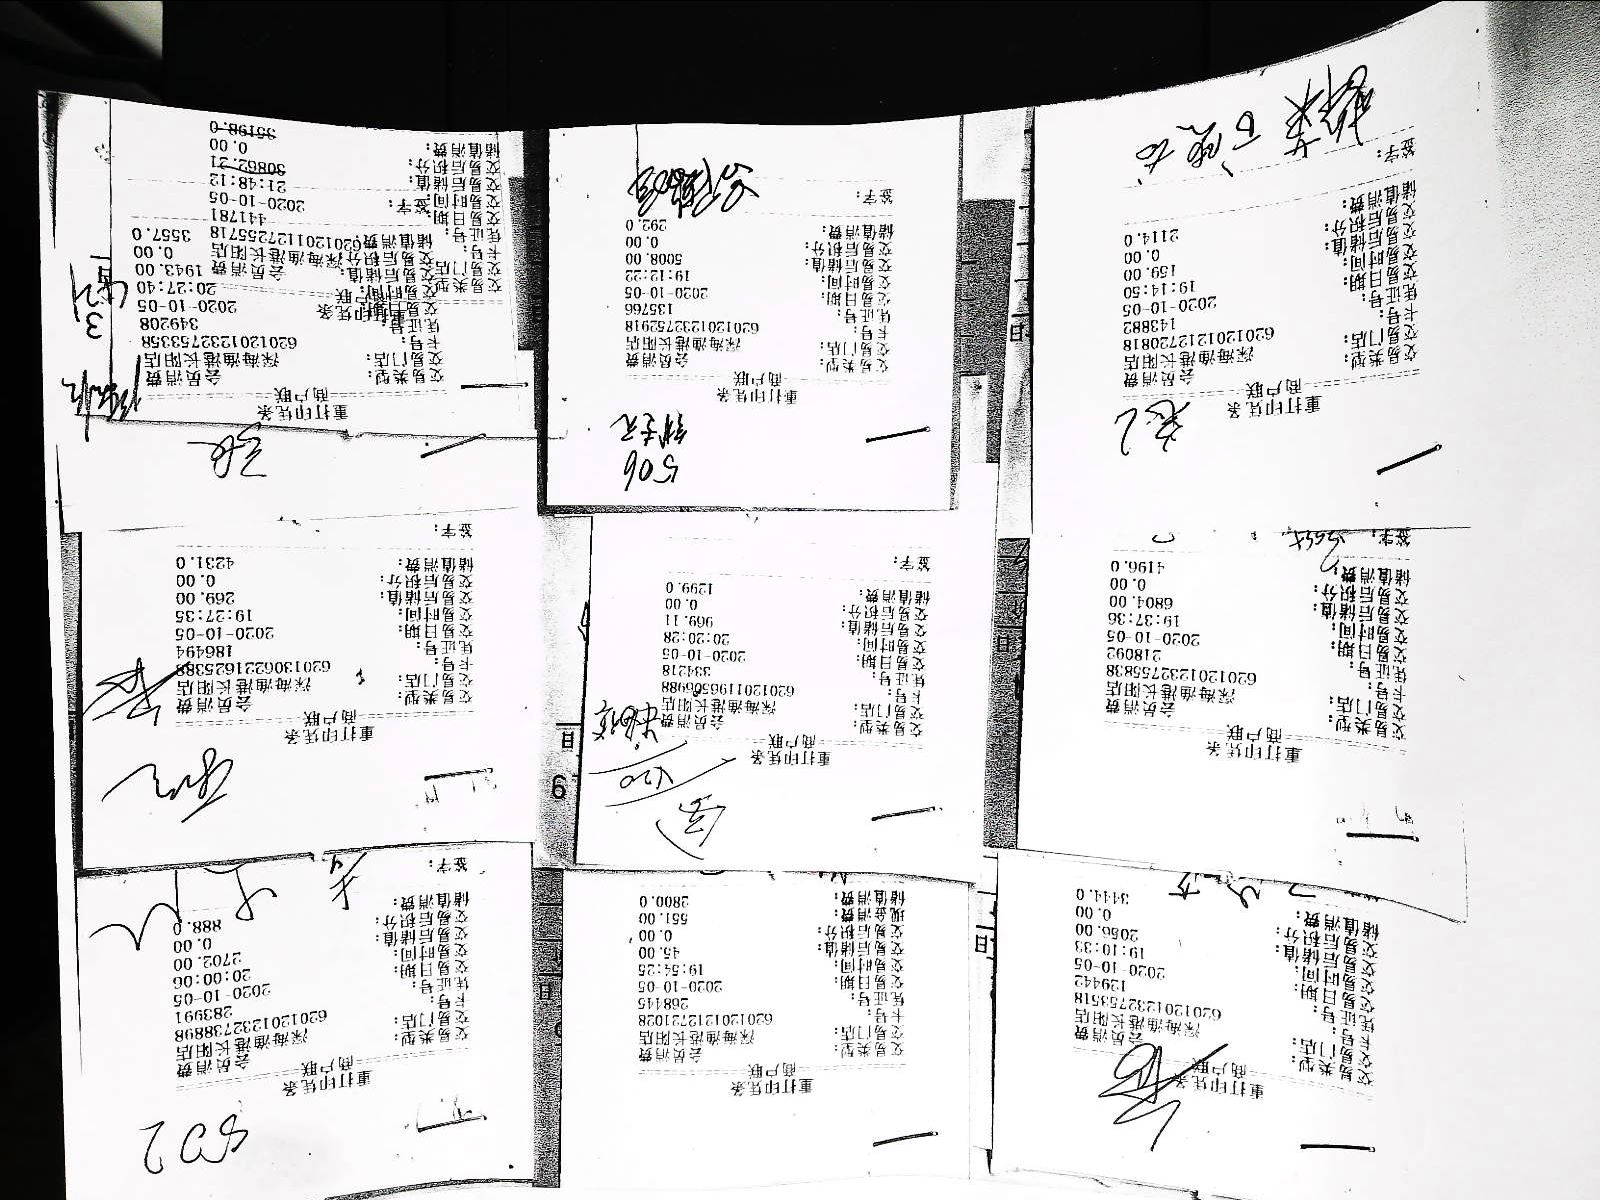 重打印凭条
商户联
交易类型: 会员消费
交易门店: 深海渔港长阳店
卡号: 6201201232753518
凭证号: 129442
交易日期: 2020-10-05
交易时间: 19:10:33
交易后储值: 2056.00
交易后积分: 0.00
储值消费: 3444.0
重打印凭条
商户联
交易类型: 会员消费
交易门店: 深海渔港长阳店
卡号: 6201201212721028
凭证号: 268445
交易日期: 2020-10-05
交易时间: 19:54:25
交易后储值: 45.00
交易后积分: 0.00
现金消费: 551.00
储值消费: 2800.0
802
重打印凭条
商户联
交易类型: 会员消费
交易门店: 深海渔港长阳店
卡号: 6201201232738898
凭证号: 283991
交易日期: 2020-10-05
交易时间: 20:00:06
交易后储值: 2702.00
交易后积分: 0.00
储值消费: 888.0
签字:
重打印凭条
商户联
交易类型: 会员消费
交易门店: 深海渔港长阳店
卡号: 6201201232755838
凭证号: 218092
交易日期: 2020-10-05
交易时间: 19:37:36
交易后储值: 6804.00
交易后积分: 0.00
储值消费: 4196.0
签字:
重打印凭条
商户联
交易类型: 会员消费
交易门店: 深海渔港长阳店
卡号: 6201201196506988
凭证号: 334218
交易日期: 2020-10-05
交易时间: 20:20:28
交易后储值: 969.11
交易后积分: 0.00
储值消费: 1299.0
签字:
重打印凭条
商户联
交易类型: 会员消费
交易门店: 深海渔港长阳店
卡号: 6201306221625388
凭证号: 186494
交易日期: 2020-10-05
交易时间: 19:27:35
交易后储值: 269.00
交易后积分: 0.00
储值消费: 4231.0
签字:
重打印凭条
商户联
交易类型: 会员消费
交易门店: 深海渔港长阳店
卡号: 6201201212720818
凭证号: 143882
交易日期: 2020-10-05
交易时间: 19:14:50
交易后储值: 159.00
交易后积分: 0.00
储值消费: 2114.0
签字:
506
重打印凭条
商户联
交易类型: 会员消费
交易门店: 深海渔港长阳店
卡号: 6201201232752918
凭证号: 135766
交易日期: 2020-10-05
交易时间: 19:12:22
交易后储值: 5008.00
交易后积分: 0.00
储值消费: 292.0
签字:
重打印凭条
商户联
交易类型: 会员消费
交易门店: 深海渔港长阳店
卡号: 6201201232753358
凭证号: 349208
交易日期: 2020-10-05
交易时间: 20:27:40
交易后储值: 1943.00
交易后积分: 0.00
储值消费: 3557.0
签字:
重打印凭条
商户联
交易类型: 会员消费
交易门店: 深海渔港长阳店
卡号: 6201201127255718
凭证号: 441781
交易日期: 2020-10-05
交易时间: 21:48:12
交易后储值: 30862.21
交易后积分: 0.00
储值消费: 35198.0